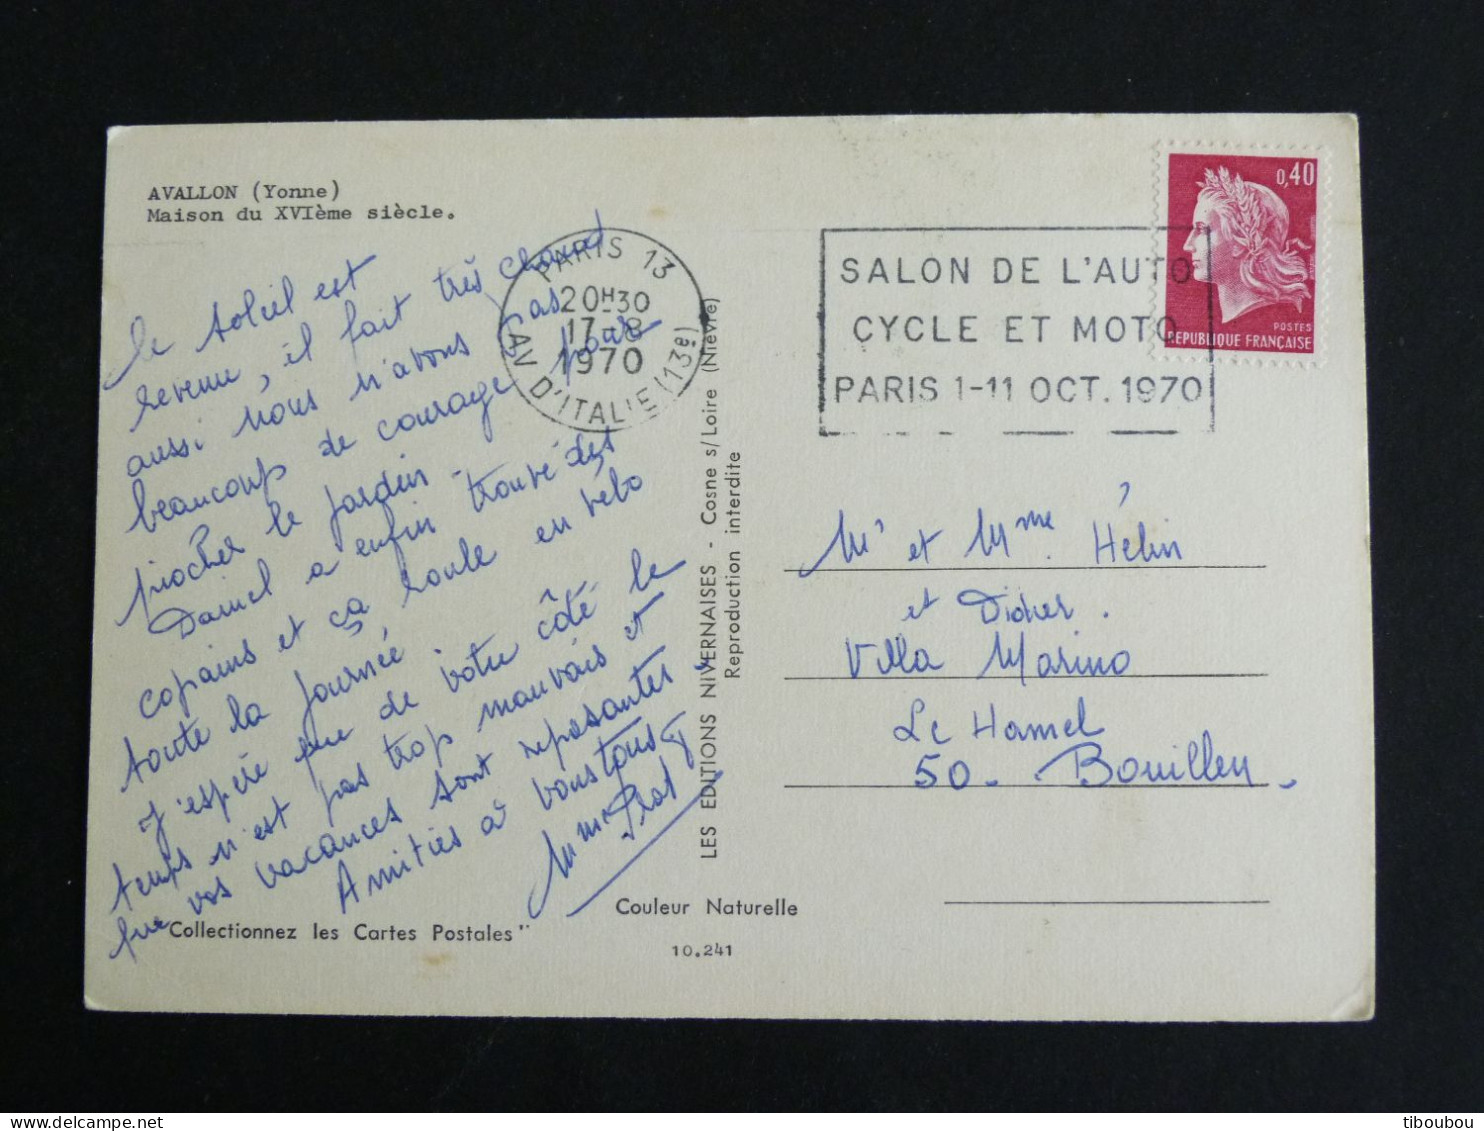 AVALLON (Yonne)
Maison du XVIème siècle.
le soleil est
revenu, il fait très chaud
aussi nous n'avons pas
beaucoup de courage pour
piocher le jardin -
Daniel a enfin trouvé des
copains et ça roule en vélo
toute la journée
J'espère que de votre côté le
temps n'est pas trop mauvais et
que vos vacances sont reposantes
Amitiés à vous tous
Mme Prat
"Collectionnez les Cartes Postales"
Couleur Naturelle
10.241
LES EDITIONS NIVERNAISES - Cosne s/Loire (Nièvre)
Reproduction interdite
PARIS 13
20H30
17-8
1970
AV D'ITALIE (13e)
SALON DE L'AUTO
CYCLE ET MOTO
PARIS 1-11 OCT. 1970
0,40
POSTES
REPUBLIQUE FRANÇAISE
Mr et Mme Hélin
et Didier.
Villa Marino
Le Hamel
50 - Bouillon -
tiboubou